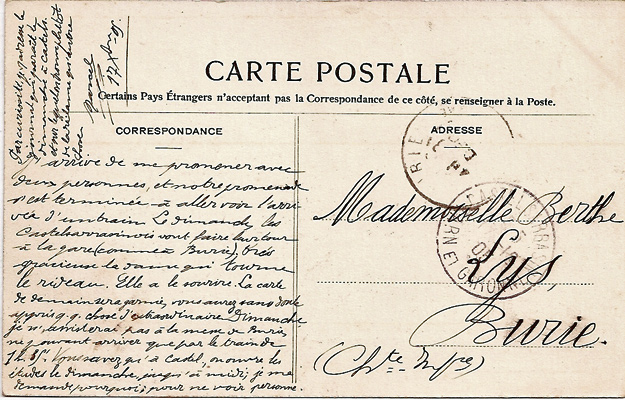 CARTE POSTALE
Certains Pays Étrangers n'acceptent pas la Correspondance de ce côté, se renseigner à la Poste.
CORRESPONDANCE
ADRESSE
Marcel
J'arrive de me promener avec
deux personnes, et notre promenade
s'est terminée à aller voir l'arri
vée d'un train. Le dimanche les
vont faire un tour
à la gare (comme à Burie), très
gracieuse la dame qui tourne
le rideau. Elle a le sourire. La carte
de demain sera jamie, vous aurez sans doute
appris q.q. chose d'extraordinaire. Dimanche
je n'assisterai pas à la messe de Burie
ne pouvant arriver que par le train de
1h.15'. Vous savez qu'à Castel, on ouvre les
études le dimanche, jusqu'à midi; je me
demande pourquoi; pour ne voir personne.
Mademoiselle Berthe
Lys,
Burie.
(Chte-Infre)
BURIE
TARN ET GARONNE